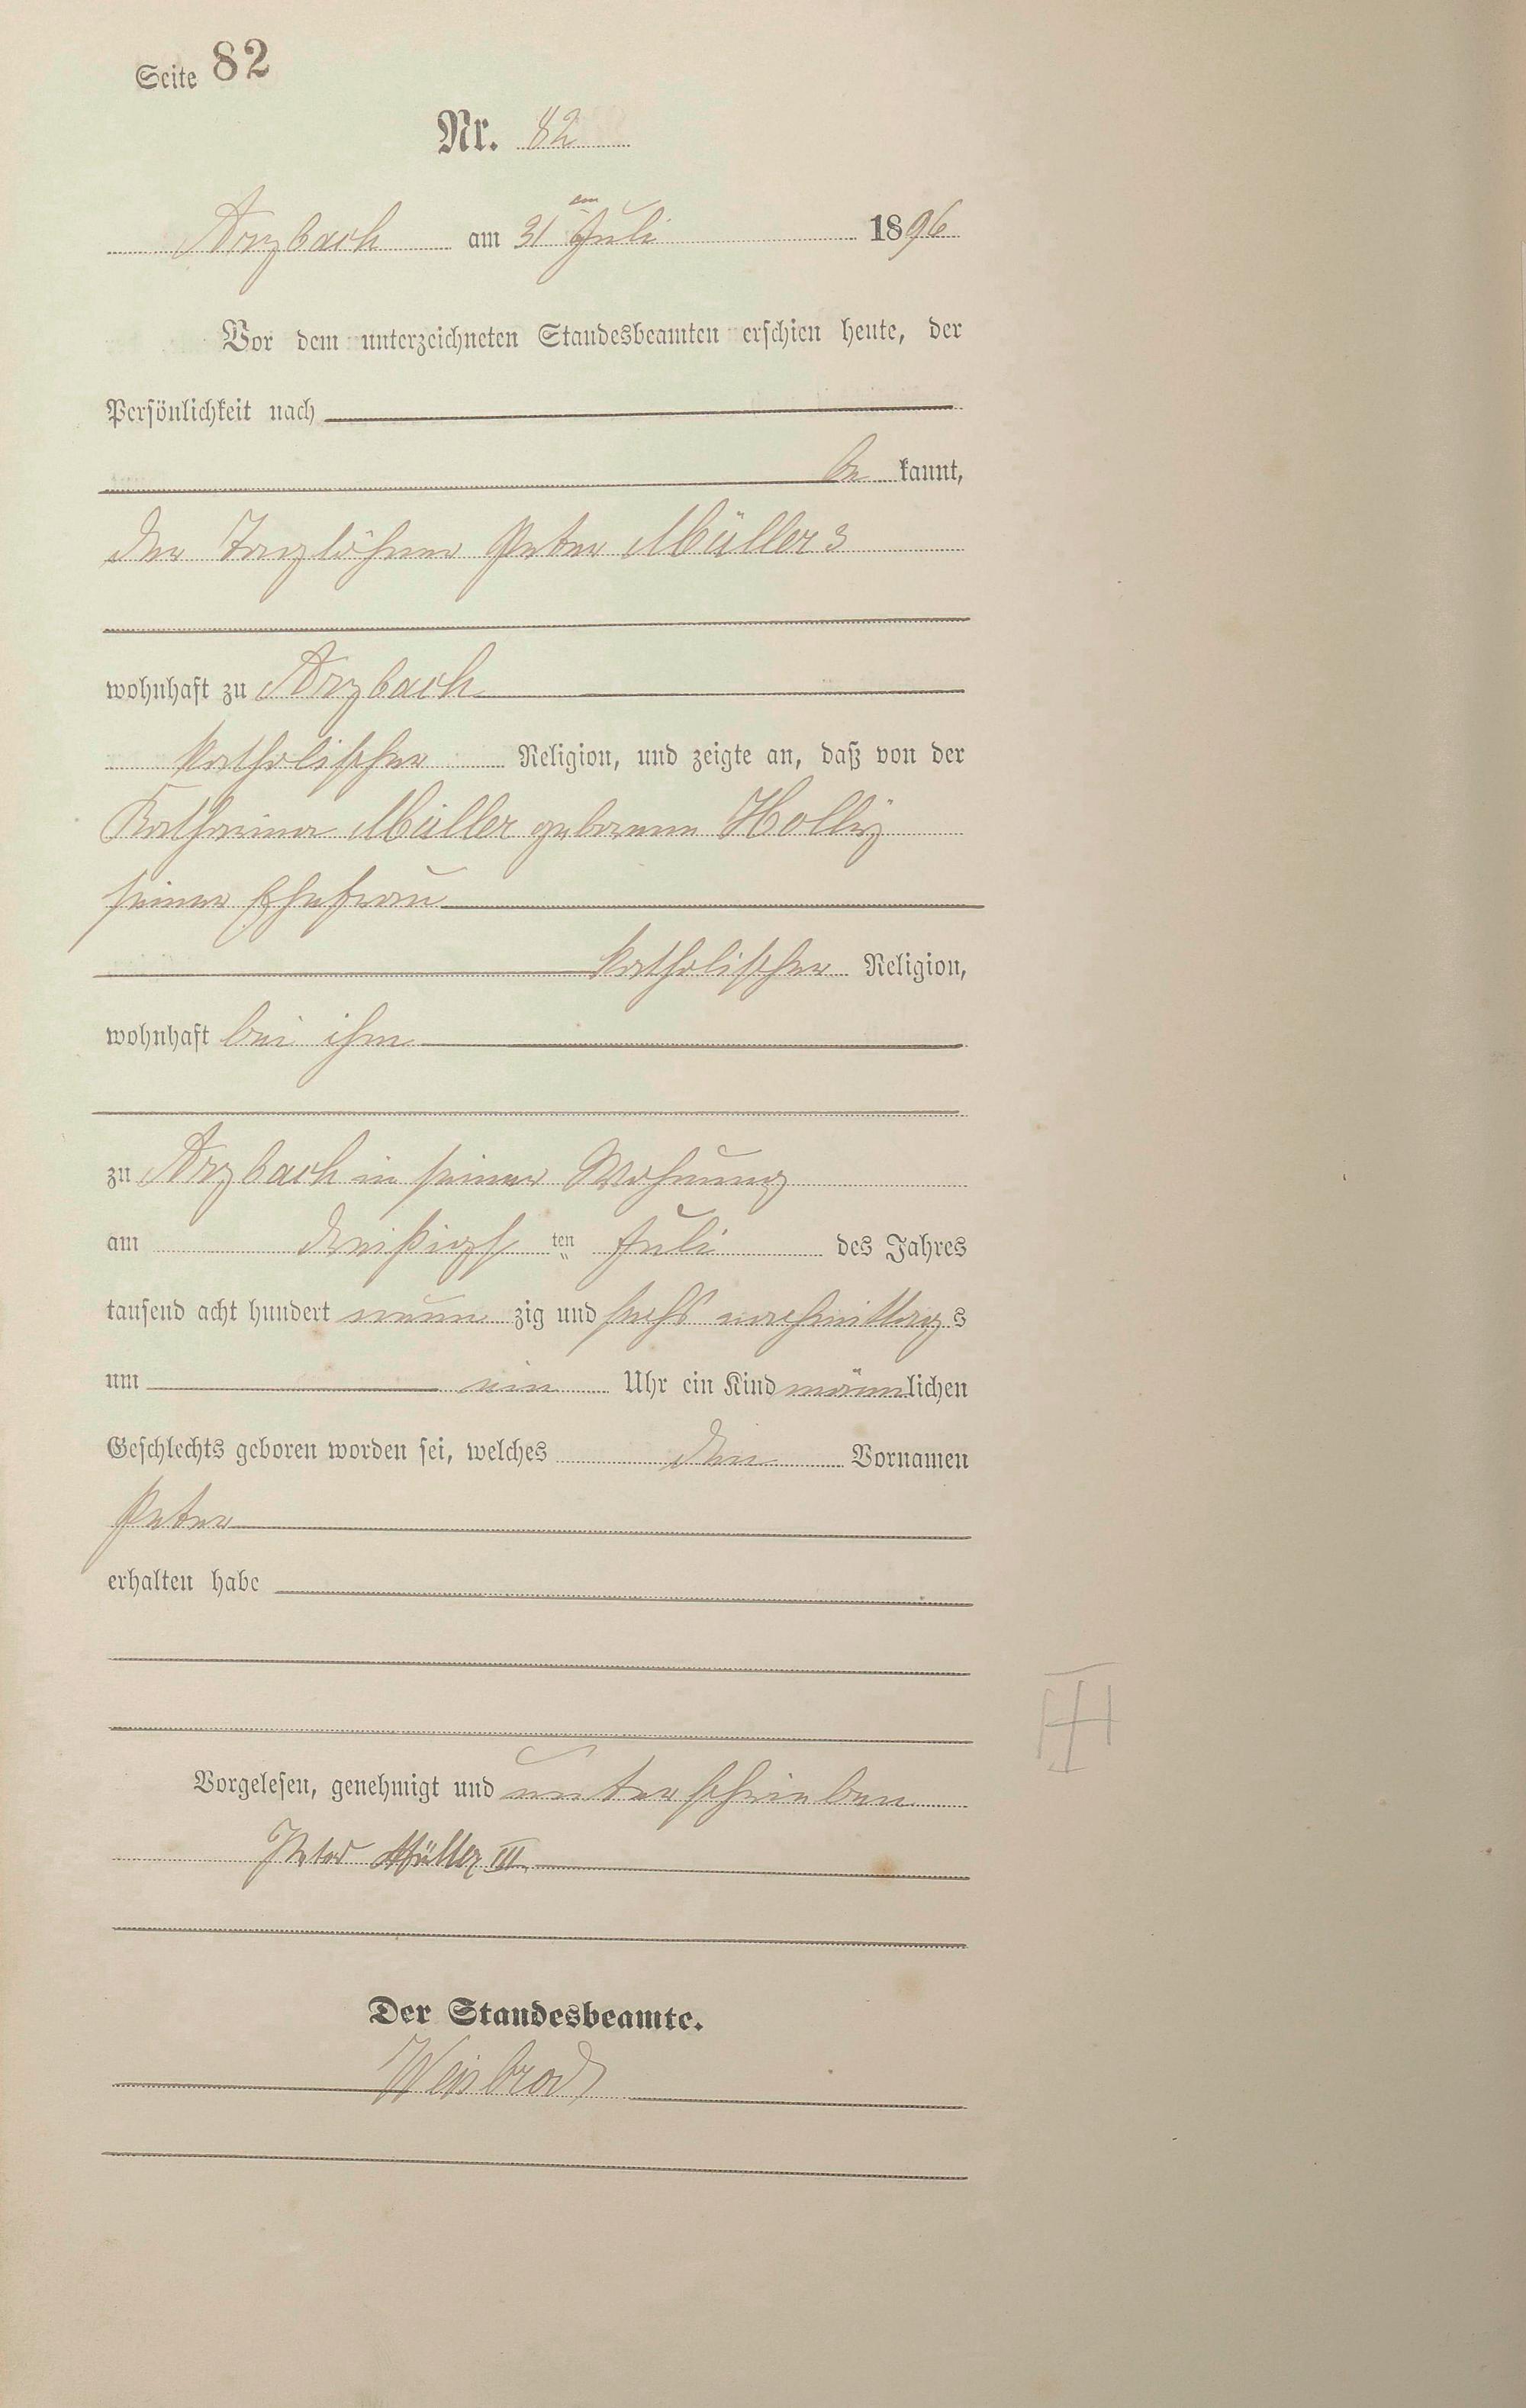 Seite 82
Nr. 82
Arzbach am 31 ten Juli 1896
Vor dem unterzeichneten Standesbeamten erschien heute, der
Persönlichkeit nach
be kannt,
der Taglöhner Peter Müller 3
wohnhaft zu Arzbach
katholischer Religion, und zeigte an, daß von der
Katharina Müller geborenen Holly
seiner Ehefrau
katholischer Religion,
wohnhaft bei ihm
zu Arzbach in seiner Wohnung
am dreißigs ten Juli des Jahres
tausend acht hundert neun zig und sechs nachmittags
um ein Uhr ein Kind männlichen
Geschlechts geboren worden sei, welches den Vornamen
Peter
erhalten habe
Vorgelesen, genehmigt und unterschrieben
Peter Müller III
Der Standesbeamte.
Weisbrod